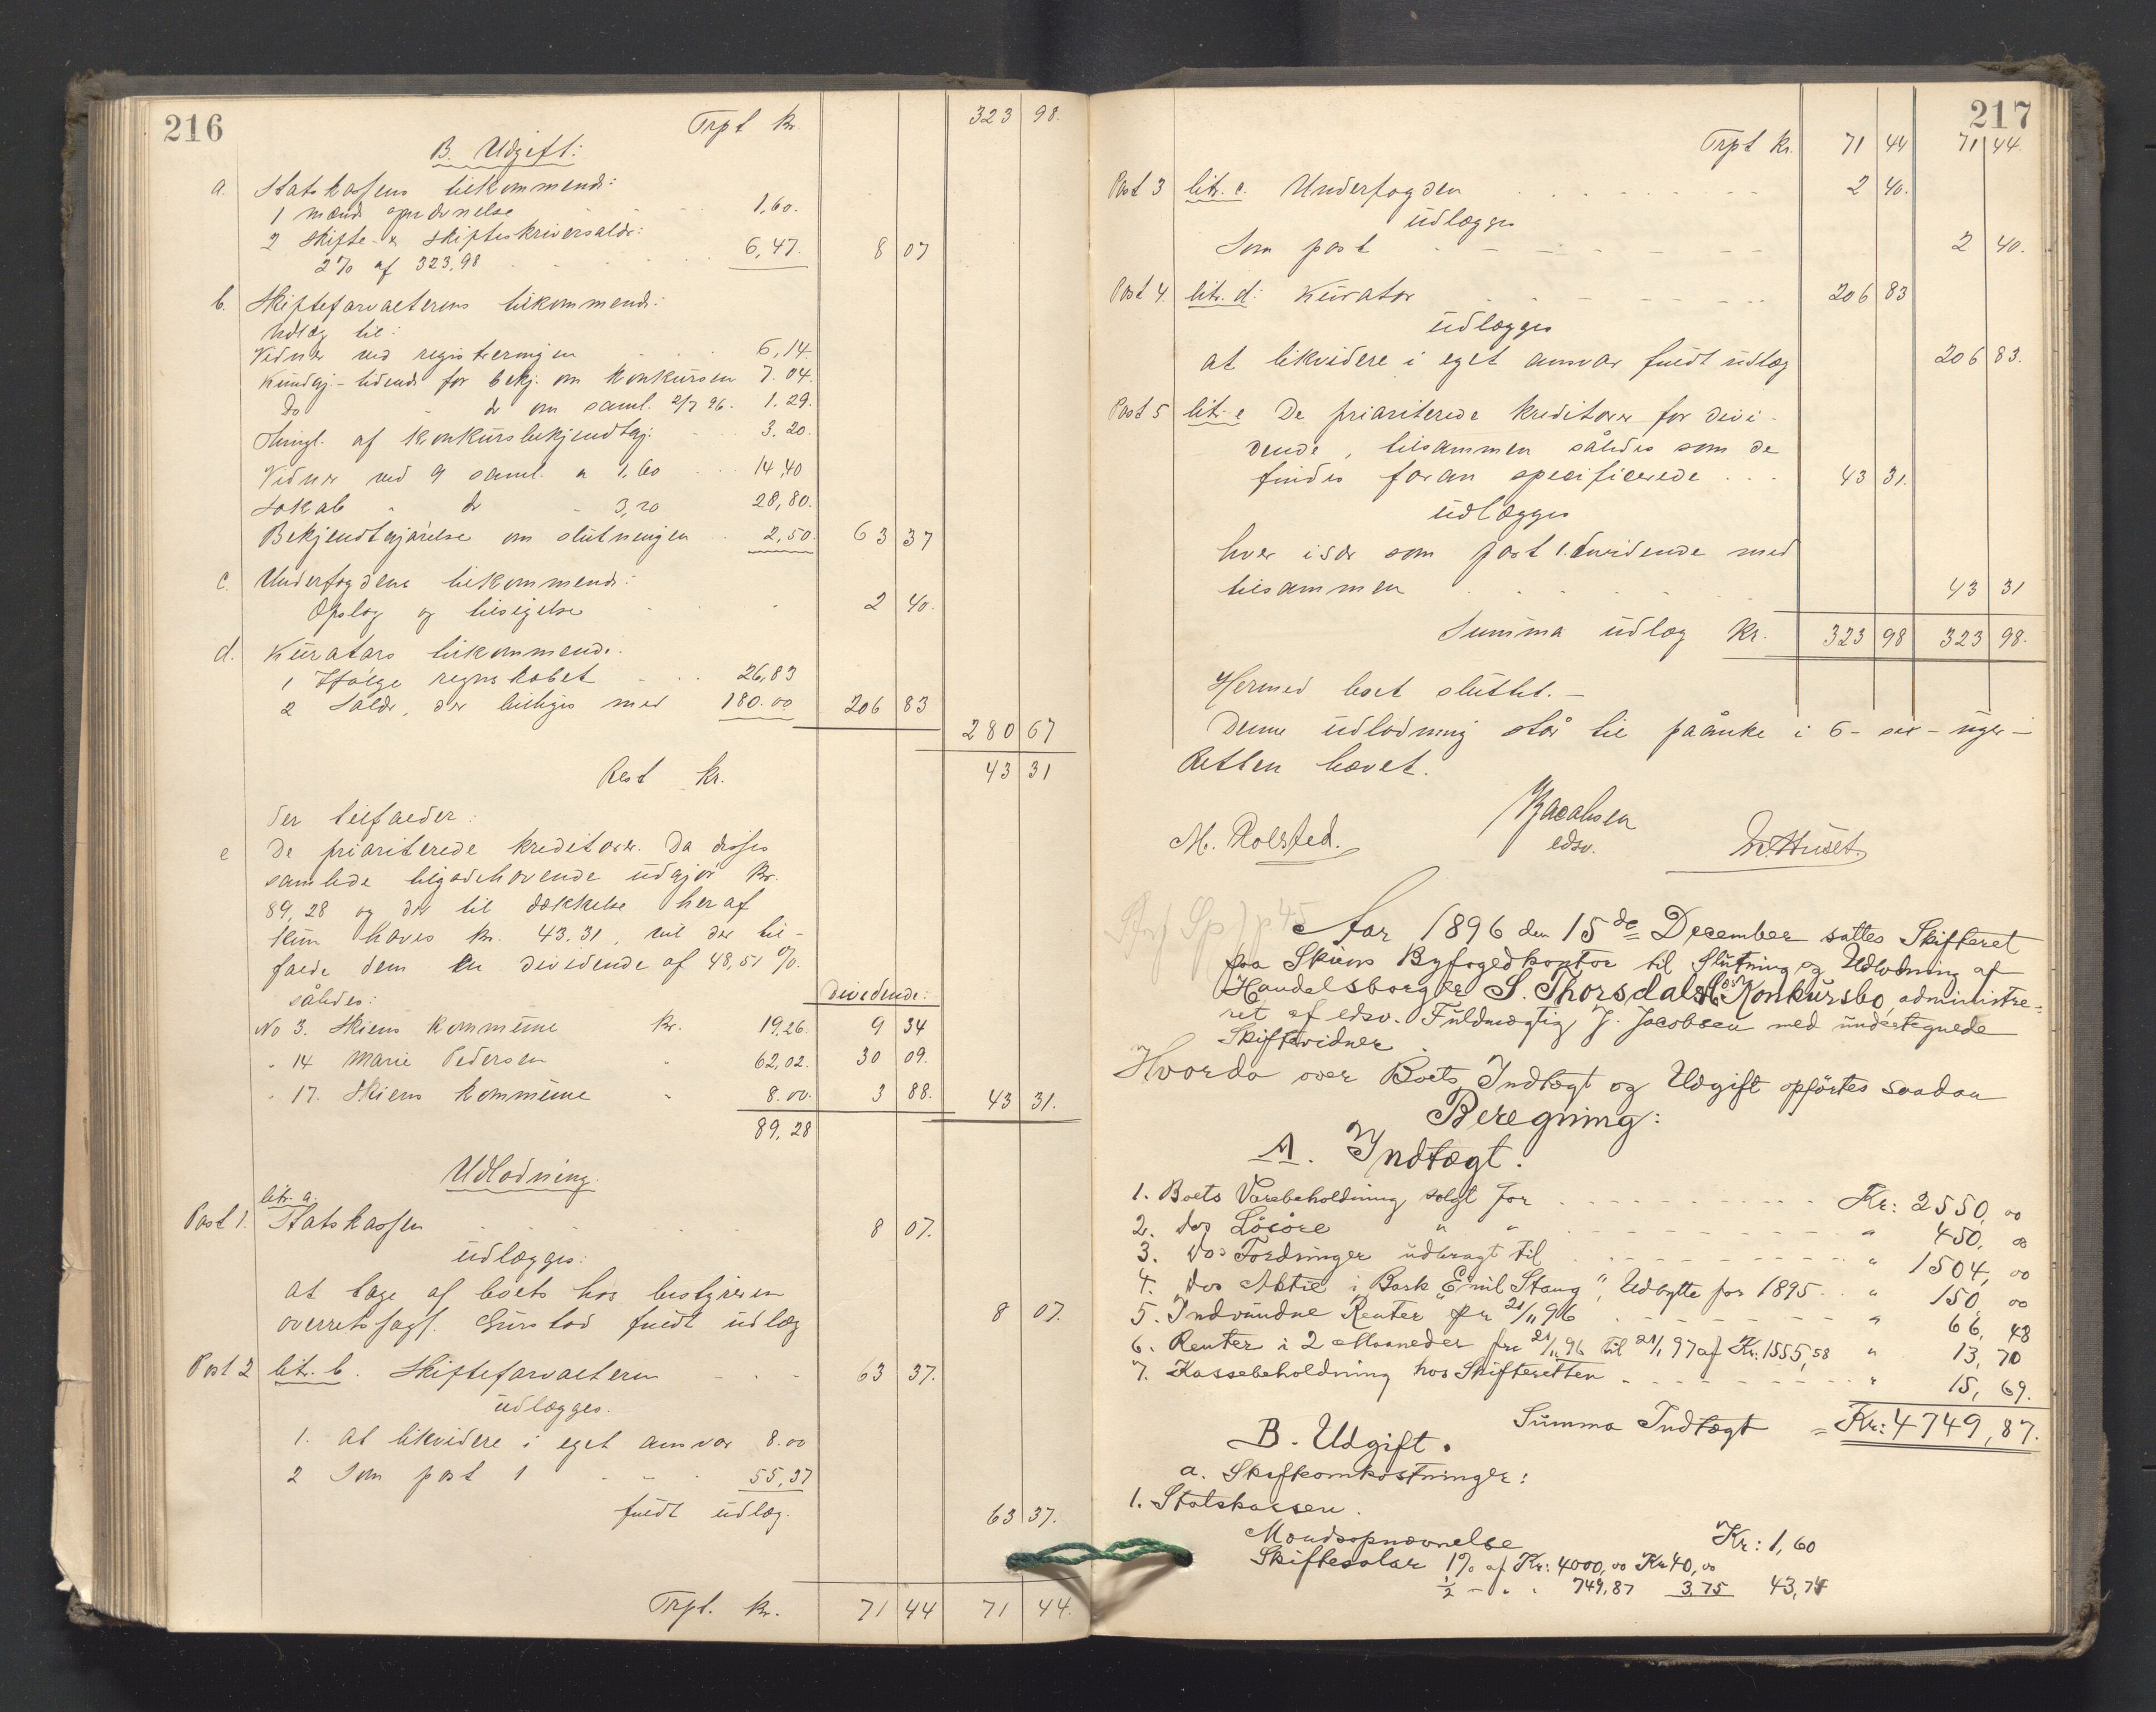 216
Trpt kr. 323 98.
B. Udgift:
a. Statskassens tilkommende:
1 mænds opnævnelse 1,60.
2 Skifte- & skifteskriversalær:
2% af 323,98 6,47. 8 07
b. Skifteforvalterens tilkommende:
Udlæg til:
Vidner ved registreringen 6,14.
Kundgj.-tidende for bekj. om konkursen 7.04.
do do om saml. 2/7 96. 1.29.
Thingl. af konkursbekjendtgj. 3.20.
Vidner ved 9 saml. a 1,60 14,40
Lokale " do " 3,20 28,80.
Bekjendtgjørelse om slutningen 2,50. 63 37
c. Underfogdens tilkommende:
Opslag og tilsigelse 2 40.
d. Kurators tilkommende.
1 Ifølge regnskabet 26,83
2 Salær, der billiges med 180.00 206 83
280 67
Rest kr. 43 31
der tilfalder:
e De prioriterede kreditorer. Da disses
samlede tilgodehavende udgjør kr.
89,28 og der til dækkelse heraf
kun haves kr. 43.31, vil der til-
falde dem en dividende af 48,51 %.
således: Dividende:
No 3. Skiens kommune kr. 19.26. 9 34
" 14 Marie Pedersen " 62,02. 30 09.
" 17. Skiens kommune " 8.00. 3 88. 43 31.
89,28
Udlodning.
litr. a.
Post 1. Statskassen 8 07.
udlægges:
at tage af boets hos bestyreren
overretssagf. Gurstad fuldt udlæg 8 07.
Post 2 litr. b. Skifteforvalteren 63 37.
udlægges.
1. at likvidere i eget ansvar 8.00
2 Som post 1 55,37
fuldt udlæg. 63 37.
Trpt. kr. 71 44 71 44.
217
Trpt kr. 71 44 71 44.
Post 3 litr. c. Underfogden 2 40.
udlægges
Som post 2 40.
Post 4. litr. d: Kurator 206 83
udlægges
at likvidere i eget ansvar fuldt udlæg 206 83.
Post 5 litr. e De prioriterede kreditorer for divi-
dende, tilsammen således som de
findes foran specificerede . . . 43 31.
udlægges
hver især som post 1. dividende med
tilsammen 43 31
Summa udlæg kr. 323 98 323 98.
Hermed boet sluttet. –
Denne udlodning står til påanke i 6 – sex – uger –
Retten hævet.
Jacobsen
M. Rolsted. edsv. Huset.
Aar 1896 den 15de December sattes Skifteret
paa Skiens Byfogedkontor til Slutning og Udlodning af
Handelsborger S. Thorsdals Konkursbo, administre-
ret af edsv. Fuldmægtig J. Jacobsen med undertegnede
Skiftevidner.
Hvorda over Boets Indtægt og Udgift opførtes saadan
Beregning:
A. Indtægt.
1. Boets Varebeholdning solgt for Kr: 2550, 00
2. dos Løsøre " " " 450, 00
3. dos Fordringer udbragt til " 1504, 00
4. dos Aktie i Bark "Emil Stang", Udbytte for 1895 . . " 150, 00
5. Indvundne Renter pr 21/11 96 " 66, 48
6. Renter i 2 Maaneder fra 21/11 96 til 21/1 97 af Kr: 1555,58 " 13, 70
7. Kassebeholdning hos Skifteretten " 15, 69.
Summa Indtægt = Kr: 4749, 87.
B. Udgift.
a. Skifteomkostninger:
1. Statskassen.
Mandsopnævnelse Kr: 1,60
Skiftesalær 1% af Kr: 4000,00 Kr 40,00
1/2 – " " 749,87 3,75 43,75